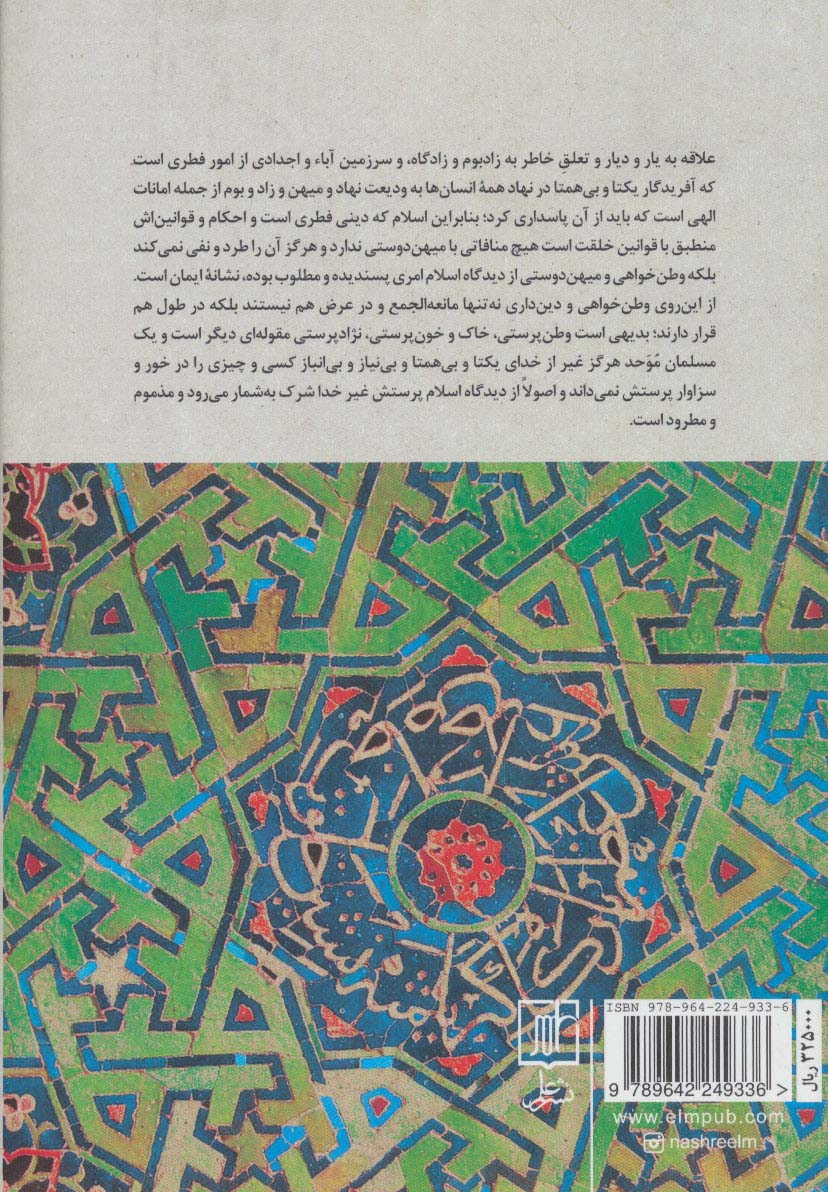 علاقه به یار و دیار و تعلقِ خاطر به زادبوم و زادگاه، و سرزمین آباء و اجدادی از امور فطری است
که آفریدگار یکتا و بی‌همتا در نهاد همهٔ انسان‌ها به ودیعت نهاد و میهن و زاد و بوم از جمله امانات
الهی است که باید از آن پاسداری کرد؛ بنابراین اسلام که دینی فطری است و احکام و قوانین‌اش
منطبق با قوانین خلقت است هیچ منافاتی با میهن‌دوستی ندارد و هرگز آن را طرد و نفی نمی‌کند
بلکه وطن‌خواهی و میهن‌دوستی از دیدگاه اسلام امری پسندیده و مطلوب بوده، نشانهٔ ایمان است.
از این‌روی وطن‌خواهی و دین‌داری نه‌تنها مانعه‌الجمع و در عرض هم نیستند بلکه در طول هم
قرار دارند؛ بدیهی است وطن‌پرستی، خاک و خون‌پرستی، نژادپرستی مقوله‌ای دیگر است و یک
مسلمان مُوَحد هرگز غیر از خدای یکتا و بی‌همتا و بی‌نیاز و بی‌انباز کسی و چیزی را در خور و
سزاوار پرستش نمی‌داند و اصولاً از دیدگاه اسلام پرستش غیر خدا شرک به‌شمار می‌رود و مذموم
و مطرود است.
نشر علم
ISBN 978-964-224-933-6
9 789642 249336 >
۳۲۵۰۰۰ ریال
www.elmpub.com
nashreelm